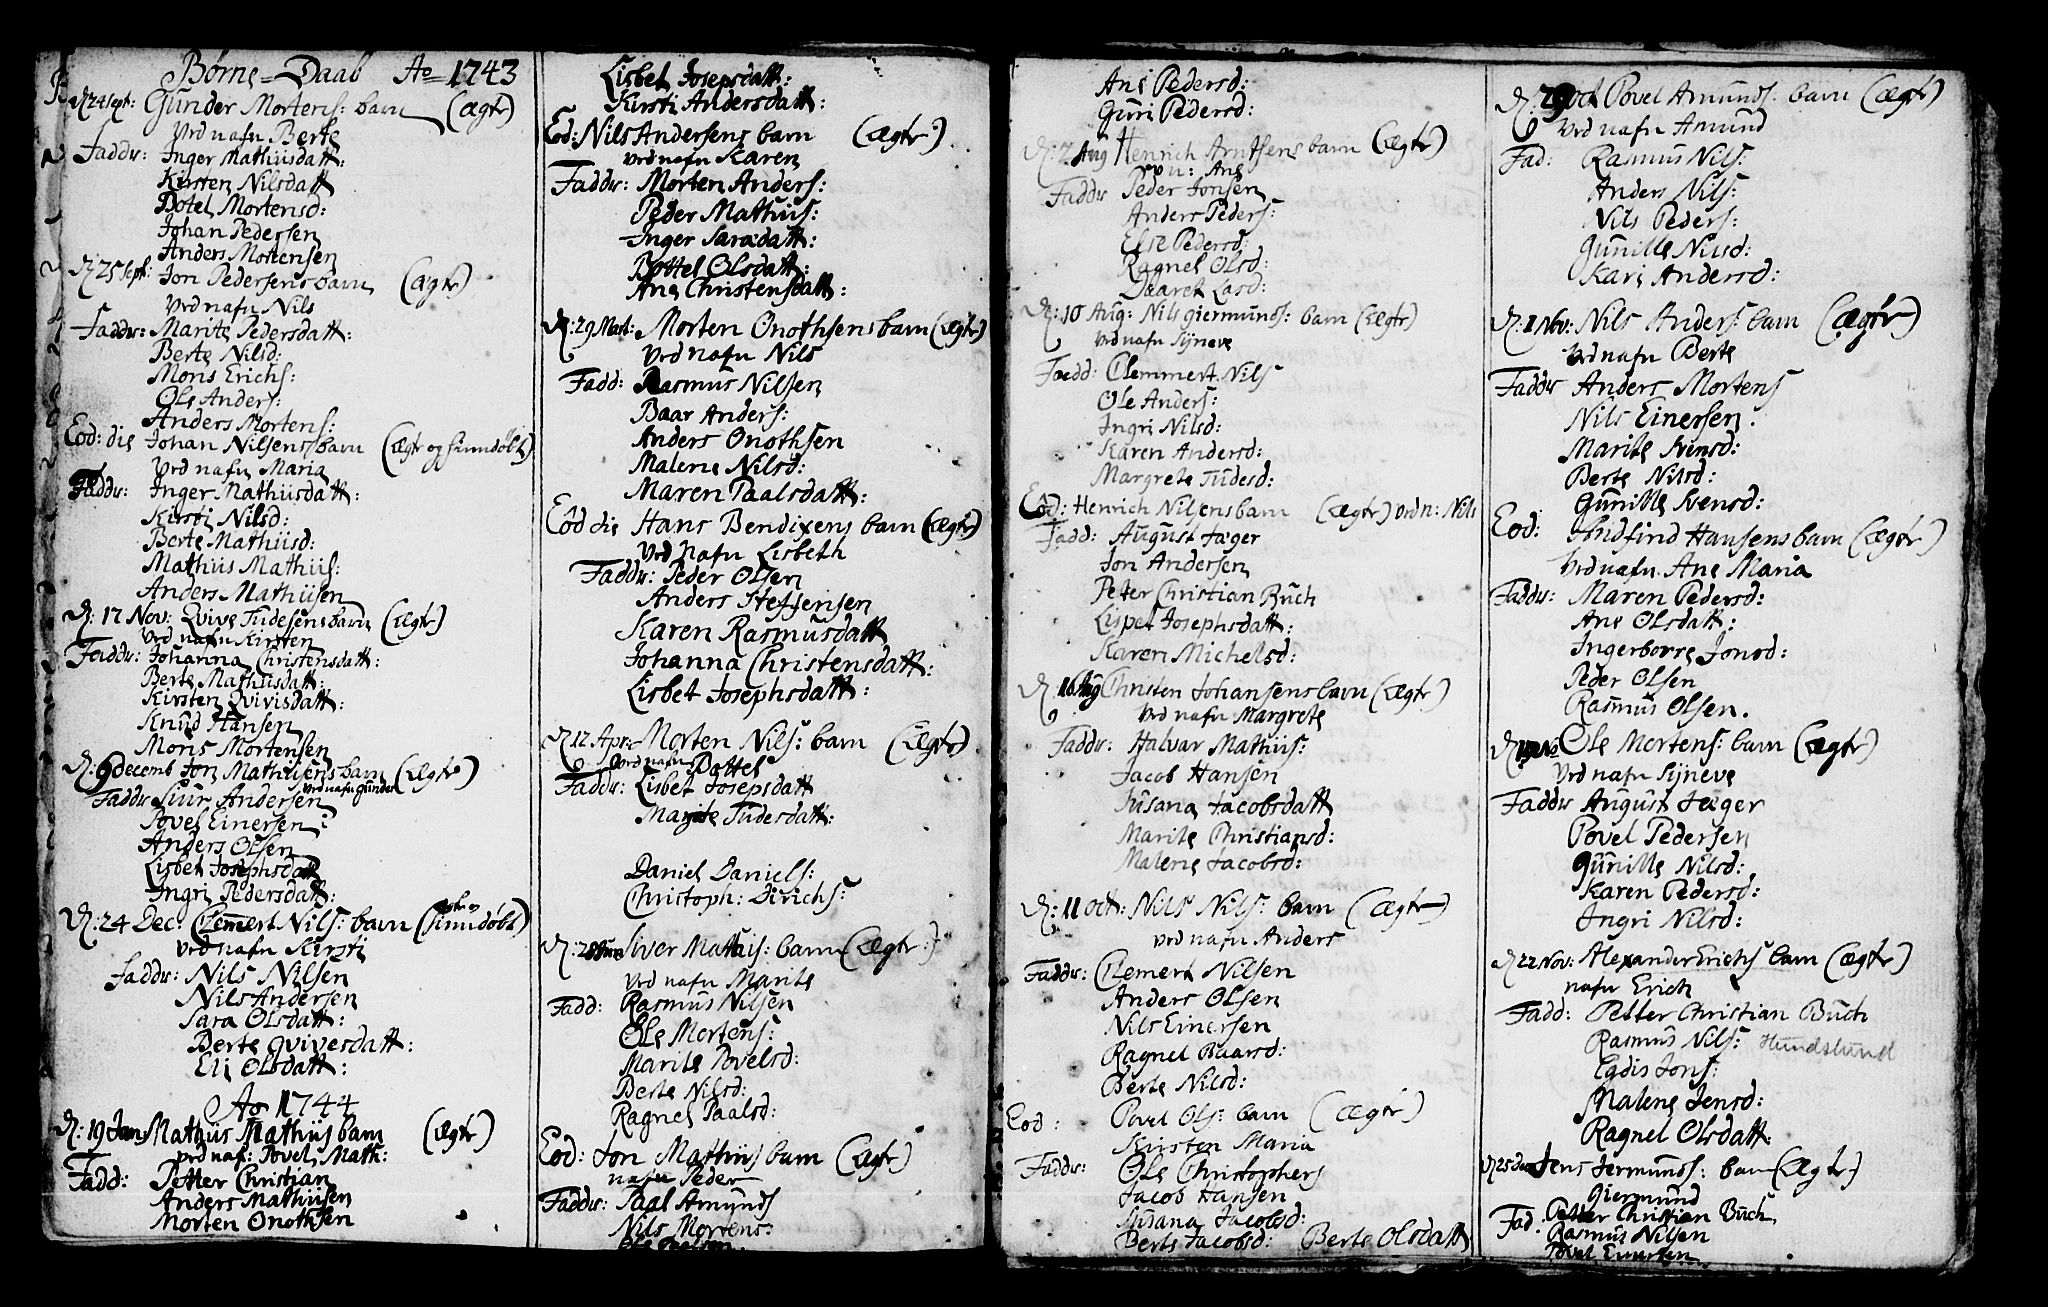 Børne-Daab Ao 1743
D 24 Sept: Gunder Mortens: barn (ægte)
Ved nafn Berte
Faddr: Inger Mathiisdatt:
Kirsten Nilsdatt
Botel Mortensd:
Johan Pedersen
Anders Mortensen
D 25 Sept: Jon Pedersens barn (ægte)
Ved nafn Nils
Faddr: Marite Pedersdatt:
Berte Nilsd:
Mons Erichs:
Ole Anders:
Anders Mortens:
Eod: die Johan Nilsens barn (ægte og hiemdøbt)
Ved nafn Maria
Faddr: Inger Mathiisdatt:
Kirsti Nilsd:
Berte Mathiisd:
Mathiis Mathiis:
Anders Mathiisen
D: 17 Nov: Qvive Tudesens barn (ægte)
Ved nafn Kirsten
Faddr: Johanna Christensdatt:
Berte Mathiisdatt:
Kirsten Qvivisdatt:
Knud Hansen
Mons Mortensen
D: 9 decemb Jon Mathiisens barn (ægte)
Ved nafn Gunder
Faddr Siur Andersen
Povel Einersen
Anders Olsen
Lisbet Josephsdatt
Ingri Pedersdatt:
D: 24 Dec: Clemmert Nils: barn (hiemdøbt)
Ved nafn Kirsti
Faddr: Nils Nilsen
Nils Andersen
Sara Olsdatt:
Berte Qvivesdatt:
Eli Olsdatt:
Ao 1744
D: 19 Jan Mathiis Mathiis barn (ægte)
Ved naf: Povel Math:
Fadd: Petter Christian
Anders Mathiisen
Morten Onothsen
Lisbet Josepsdatt:
Kirsti Andersdatt:
Eod: Nils Andersens barn (ægte:)
Ved nafn Karen
Faddr: Morten Anders:
Peder Mathiis:
Inger Saradatt:
Bottel Olsdatt:
Ane Christensdatt:
D: 29 Mart: Morten Onothsens barn (ægte)
Ved nafn Nils
Fadd: Rasmus Nilsen
Baar Anders:
Anders Onothsen
Malene Nilsd:
Maren Paalsdatt:
Eod die Hans Bendixens barn (ægte)
Ved Nafn Lisbeth
Faddr: Peder Olsen
Anders Steffensen
Karen Rasmusdatt
Johanna Christensdatt:
Lisbet Josephsdatt:
D 12 Apr: Morten Nils: barn (ægte)
Ved nafn Bottel
Faddr: Lisbet Josepsdatt
Marite Tudesdatt:
Daniel Daniels:
Christoph: Dirichs:
D: 28 Siver Mathiis: barn (ægte:)
Ved nafn Marite
Fadd: Rasmus Nilsen
Ole Mortens:
Marite Povelsd:
Berte Nilsd:
Ragnel Paalsd:
Eod: Jon Mathiis barn (ægte)
nafn Peder
Faddr: Paal Amunds
Nils Mortens:
Ane Pedersd:
Guri Pedersd:
D: 2 Aug Henrich Arntsens barn (ægte)
v n: Ane
Faddr Peder Jonsen
Anders Peders:
Else Pedersd:
Ragnel Olsd:
Daaret Lasd:
D: 10 Aug: Nils Giermunds: barn (ægte)
Ved nafn Syneve
Fadd: Clemmert Nils
Ole Anders:
Ingri Nilsd:
Karen Andersd:
Margrete Tudesd:
Eod: Henrich Nilsens barn (ægte) ved n: Nils
Fadd: August Jæger
Jon Andersen
Peter Christian Buch
Lispet Josephsdatt:
Karen Michelsd:
D: 16 Aug Christen Johansens barn (ægte)
Ved nafn Margrete
Faddr: Halvar Mathiis:
Jacob Hansen
Susana Jacobsdatt
Marite Christiansd:
Malene Jacobsd:
D: 11 Oct: Nils Nils: barn (ægte)
Ved nafn Anders
Faddr: Clemert Nilsen
Anders Olsen
Nils Einersen
Ragnel Baarsd:
Berte Nilsd:
Eod: Povel Ols: barn (ægte)
Kirsten Maria
Faddr: Ole Christophers
Jacob Hansen
Susana Jacobsd:
Berte Jacobsd: Berte Olsdatt
D: 29 Oct Povel Amunds: barn (ægte)
Ved nafn Amund
Fad: Rasmus Nils:
Anders Nils:
Nils Peders:
Gunille Nilsd:
Kari Andersd:
D: 1 Nov: Nils Anders: barn (ægte)
Ved nafn Berte
Faddr Anders Mortens
Nils Einersen.
Marite Svensd:
Berte Nilsd:
Gunille Svensd:
Eod: Andfind Hansens barn (ægte)
Ved nafn Ane Maria
Faddr: Maren Pedersd:
Ane Olsdatt:
Ingerborre Jonsd:
Peder Olsen
Rasmus Olsen.
D Ole Mortens: barn (ægte)
Ved nafn Syneve
Faddr August Jæger
Povel Pedersen
Gunille Nilsd:
Karen Pedersd:
Ingri Nilsd:
D 22 Nov: Alexander Erichs barn (ægte)
nafn Erich
Fadd: Petter Christian Buch
Rasmus Nils: Hundslund
Egdis Jons:
Malene Jensd:
Ragnel Olsdatt:
D 25 Jens Jermunds: barn (ægte:)
Giermund
Fad: Petter Christian Buch
Rasmus Nilsen
Povel Einersen